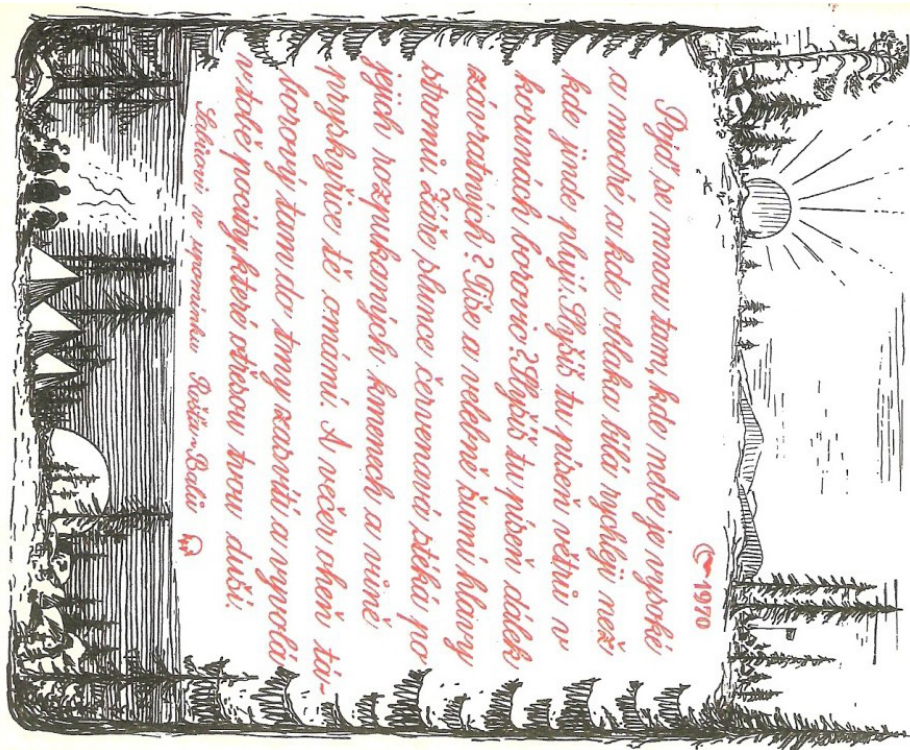 1970
Pojď se mnou tam, kde nebe je vysoké
a modré a kde oblaka bílá rychleji než
kde jinde plují. Slyšíš tu píseň větrů v
korunách borovic? Slyšíš tu píseň dálek
závratných? Tiše a velebně šumí hlavy
stromů. Záře slunce červenavá stéká po
jejich rozpukaných kmenech a vůně
pryskyřice tě omámí. A večer oheň tá-
borový tam do tmy zasvítí a vyvolá
v tobě pocity, které otřesou tvou duší.
v upomínku Rosťa-Balú